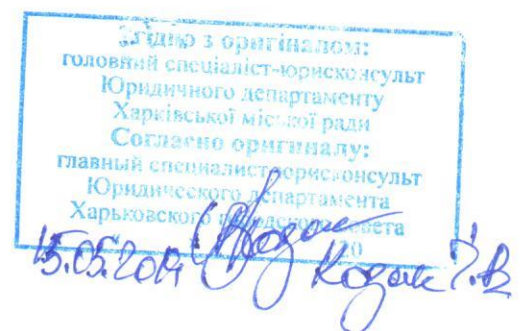 Згідно з оригіналом:
головний спеціаліст-юрисконсульт
Юридичного департаменту
Харківської міської ради
Согласно оригиналу:
главный специалист-юрисконсульт
Юридического департамента
Харьковского городского совета
20
15.05.201